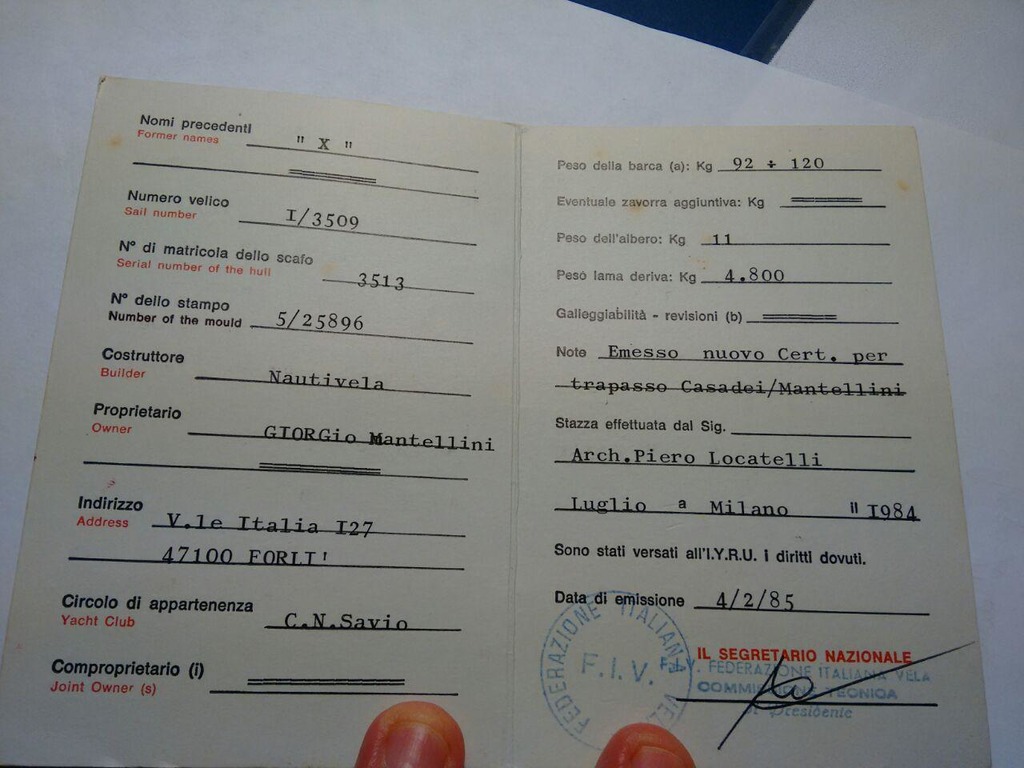 Nomi precedenti " X "
Former names
Numero velico
Sail number I/3509
N° di matricola dello scafo
Serial number of the hull 3513
N° dello stampo
Number of the mould 5/25896
Costruttore
Builder Nautivela
Proprietario
Owner GIORGio Mantellini
Indirizzo
Address V.le Italia I27
47100 FORLI'
Circolo di appartenenza
Yacht Club C.N.Savio
Comproprietario (i)
Joint Owner (s)
Peso della barca (a): Kg 92 ÷ 120
Eventuale zavorra aggiuntiva: Kg
Peso dell'albero: Kg 11
Peso lama deriva: Kg 4.800
Galleggiabilità - revisioni (b)
Note Emesso nuovo Cert. per
trapasso Casadei/Mantellini
Stazza effettuata dal Sig.
Arch.Piero Locatelli
Luglio a Milano " I984
Sono stati versati all'I.Y.R.U. i diritti dovuti.
Data di emissione 4/2/85
IL SEGRETARIO NAZIONALE
FEDERAZIONE ITALIANA VELA
F.I.V.
F.I.V. FEDERAZIONE ITALIANA VELA
COMMISSIONE TECNICA
Il Presidente